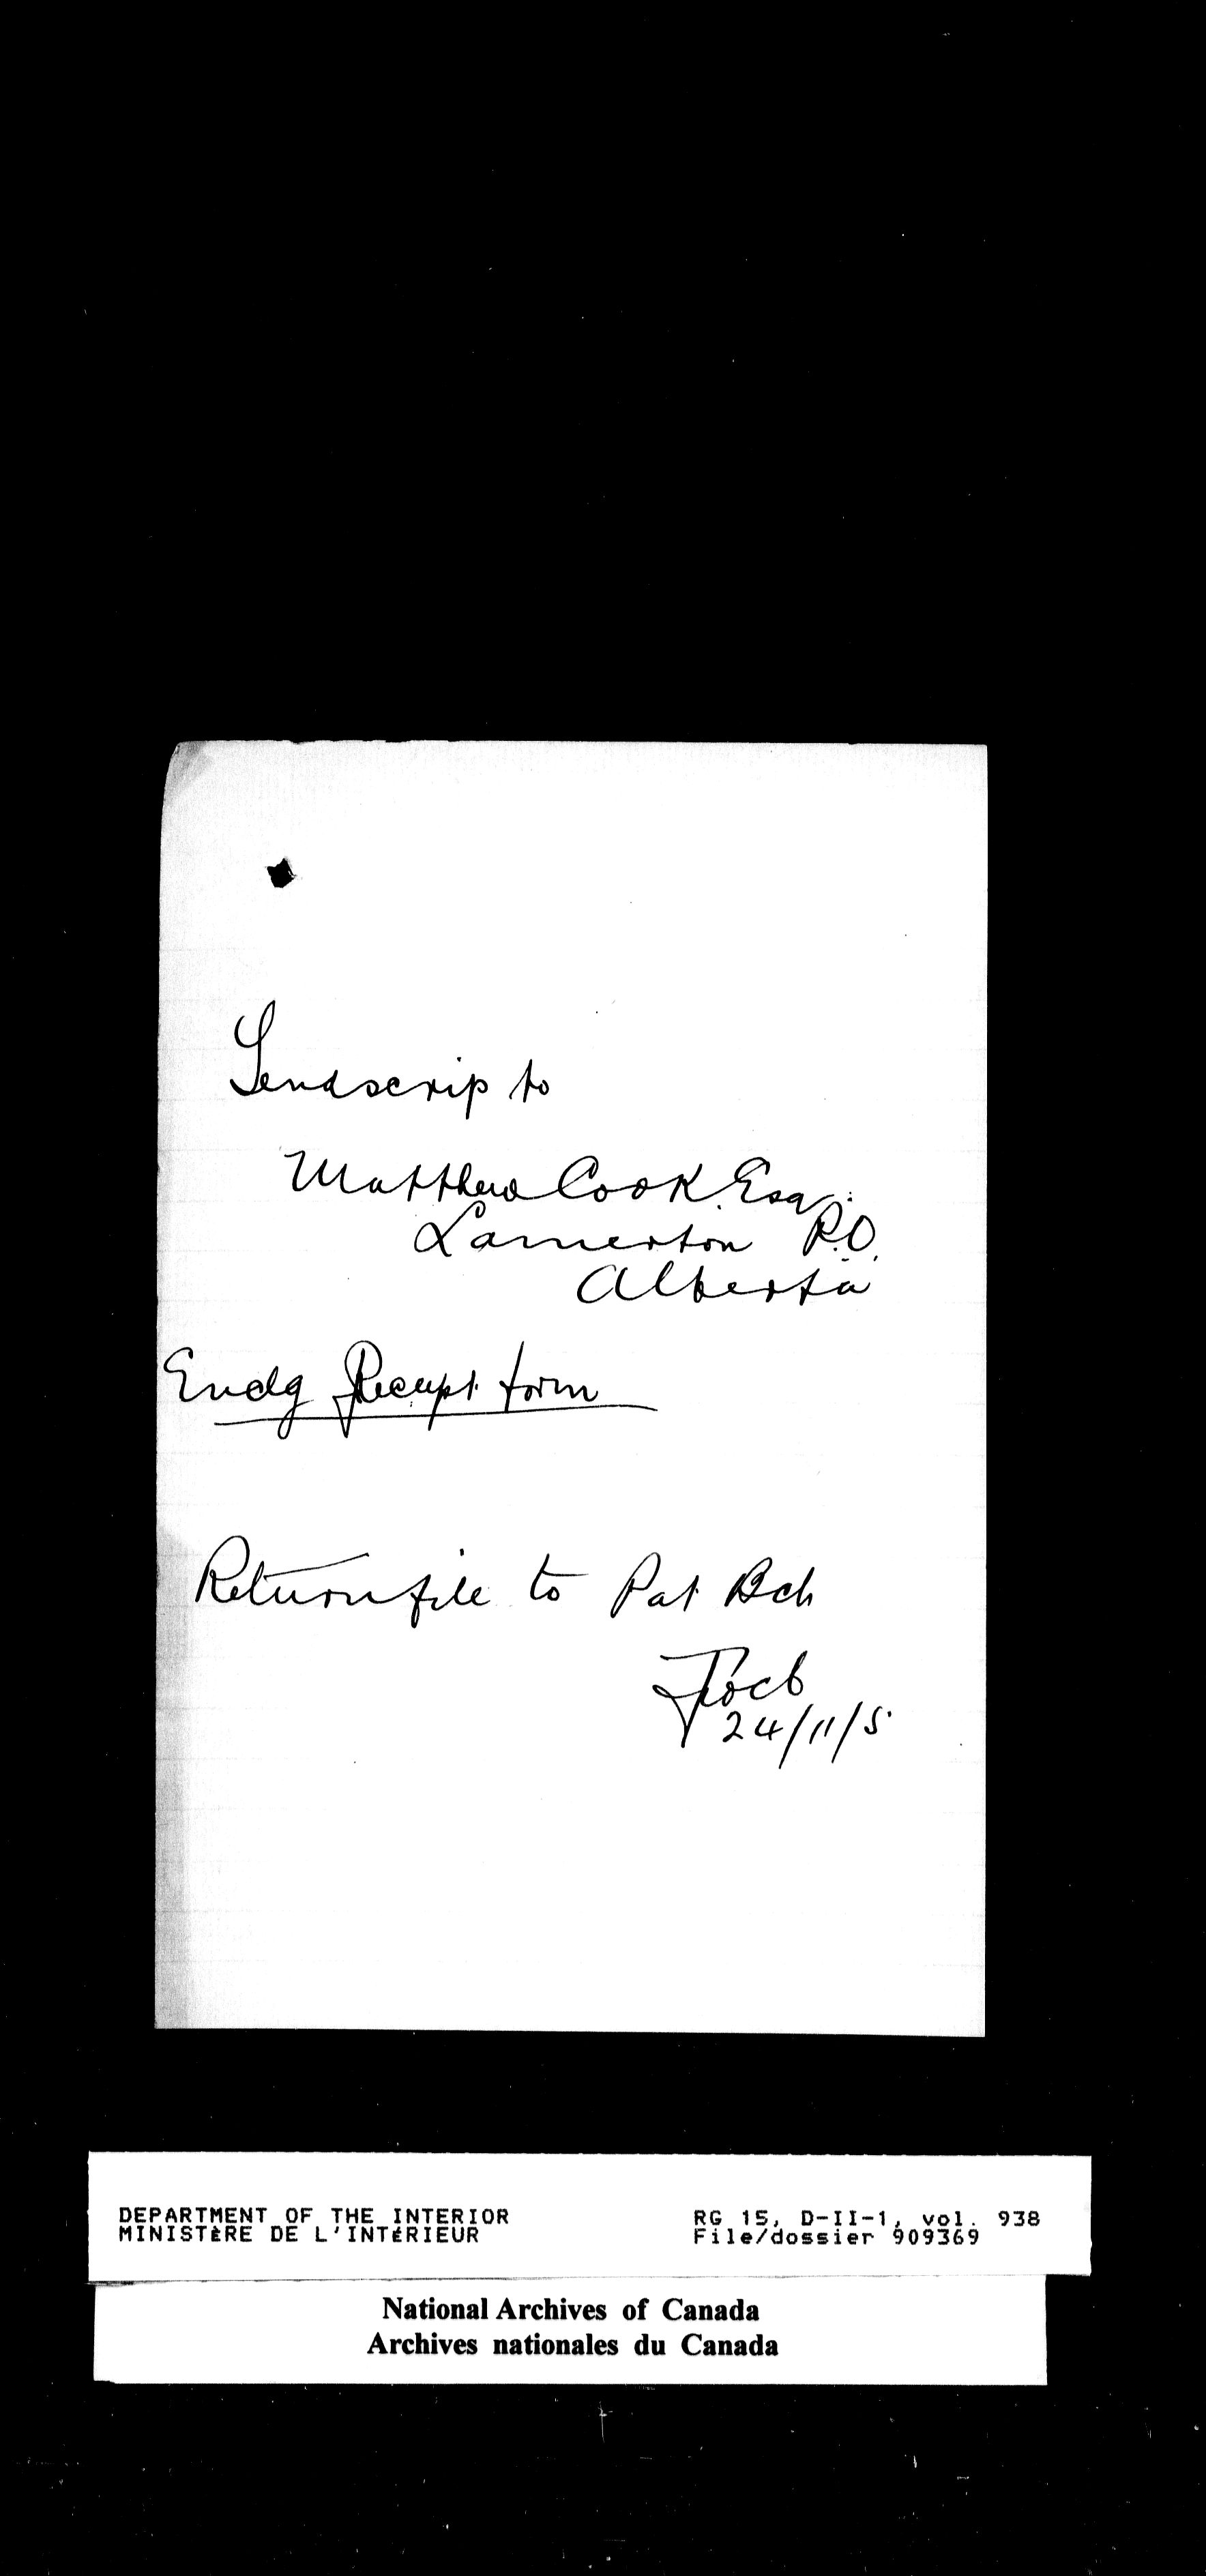 Send scrip to
Matthew Cook Esq.
Lamerton P.O.
Alberta
Encdg Receipt form
Return file to Pat Bch
24/11/5
DEPARTMENT OF THE INTERIOR
MINISTÈRE DE L'INTÉRIEUR
RG 15, D-II-1, vol. 938
File/dossier 909369
National Archives of Canada
Archives nationales du Canada